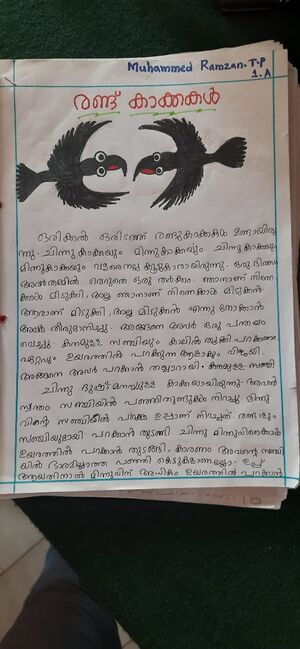 Muhammed Ramzan.T.P
1.A
രണ്ട് കാക്കകൾ
ഒരിക്കൽ ഒരിടത്ത് രണ്ടുകാക്കകൾ ഉണ്ടായിരു
ന്നു- ചിന്നു കാക്കയും മിന്നുകാക്കയും ചിന്നുകാക്കയും
മിന്നുകാക്കയും വളരെനല്ല കൂട്ടുകാരായിരുന്നു. ഒരു ദിവസം
അവർതമ്മിൽ വെറുതെ ഒരു തർക്കം. ഞാനാണ് നിന്നെ
ക്കാൾ മിടുക്കി. അല്ല ഞാനാണ് നിന്നെക്കാൾ മിടുക്കൻ
ആരാണ് മിടുക്കി അല്ല മിടുക്കൻ എന്നു നോക്കാൻ
അവർ തീരുമാനിച്ചു. അങ്ങനെ അവർ ഒരു പന്തയം
വെച്ചു. കനമുള്ള സഞ്ചിയും കാലിൽ തൂക്കി പറക്കണം
ഏറ്റവും ഉയരത്തിൽ പറക്കുന്ന ആളാകും വിജയി.
അങ്ങനെ അവർ പറക്കാൻ തയ്യാറായി. കനമുള്ള സഞ്ചി
ചിന്നു ദുഷ്ടമനസ്സുള്ള കാക്കയായിരുന്നു- അവൻ
സ്വന്തം സഞ്ചിയിൽ പഞ്ഞിനുറുക്കും നിറച്ചു മിന്നു
വിന്റെ സഞ്ചിയിൽ പക്ഷെ ഉപ്പാണ് നിറച്ചത്. രണ്ടാളും
സഞ്ചിയുമായി പറക്കാൻ തുടങ്ങി. ചിന്നു മിന്നുവിനെക്കാൾ
ഉയരത്തിൽ പറക്കാൻ തുടങ്ങി. കാരണം അവന്റെ സഞ്ചി
യിൽ ഭാരമില്ലാത്ത പഞ്ഞി കെട്ടുകളാണല്ലോ- ഉപ്പ്
ആയതിനാൽ മിന്നുവിന് അധികം ഉയരത്തിൽ പറക്കാൻ